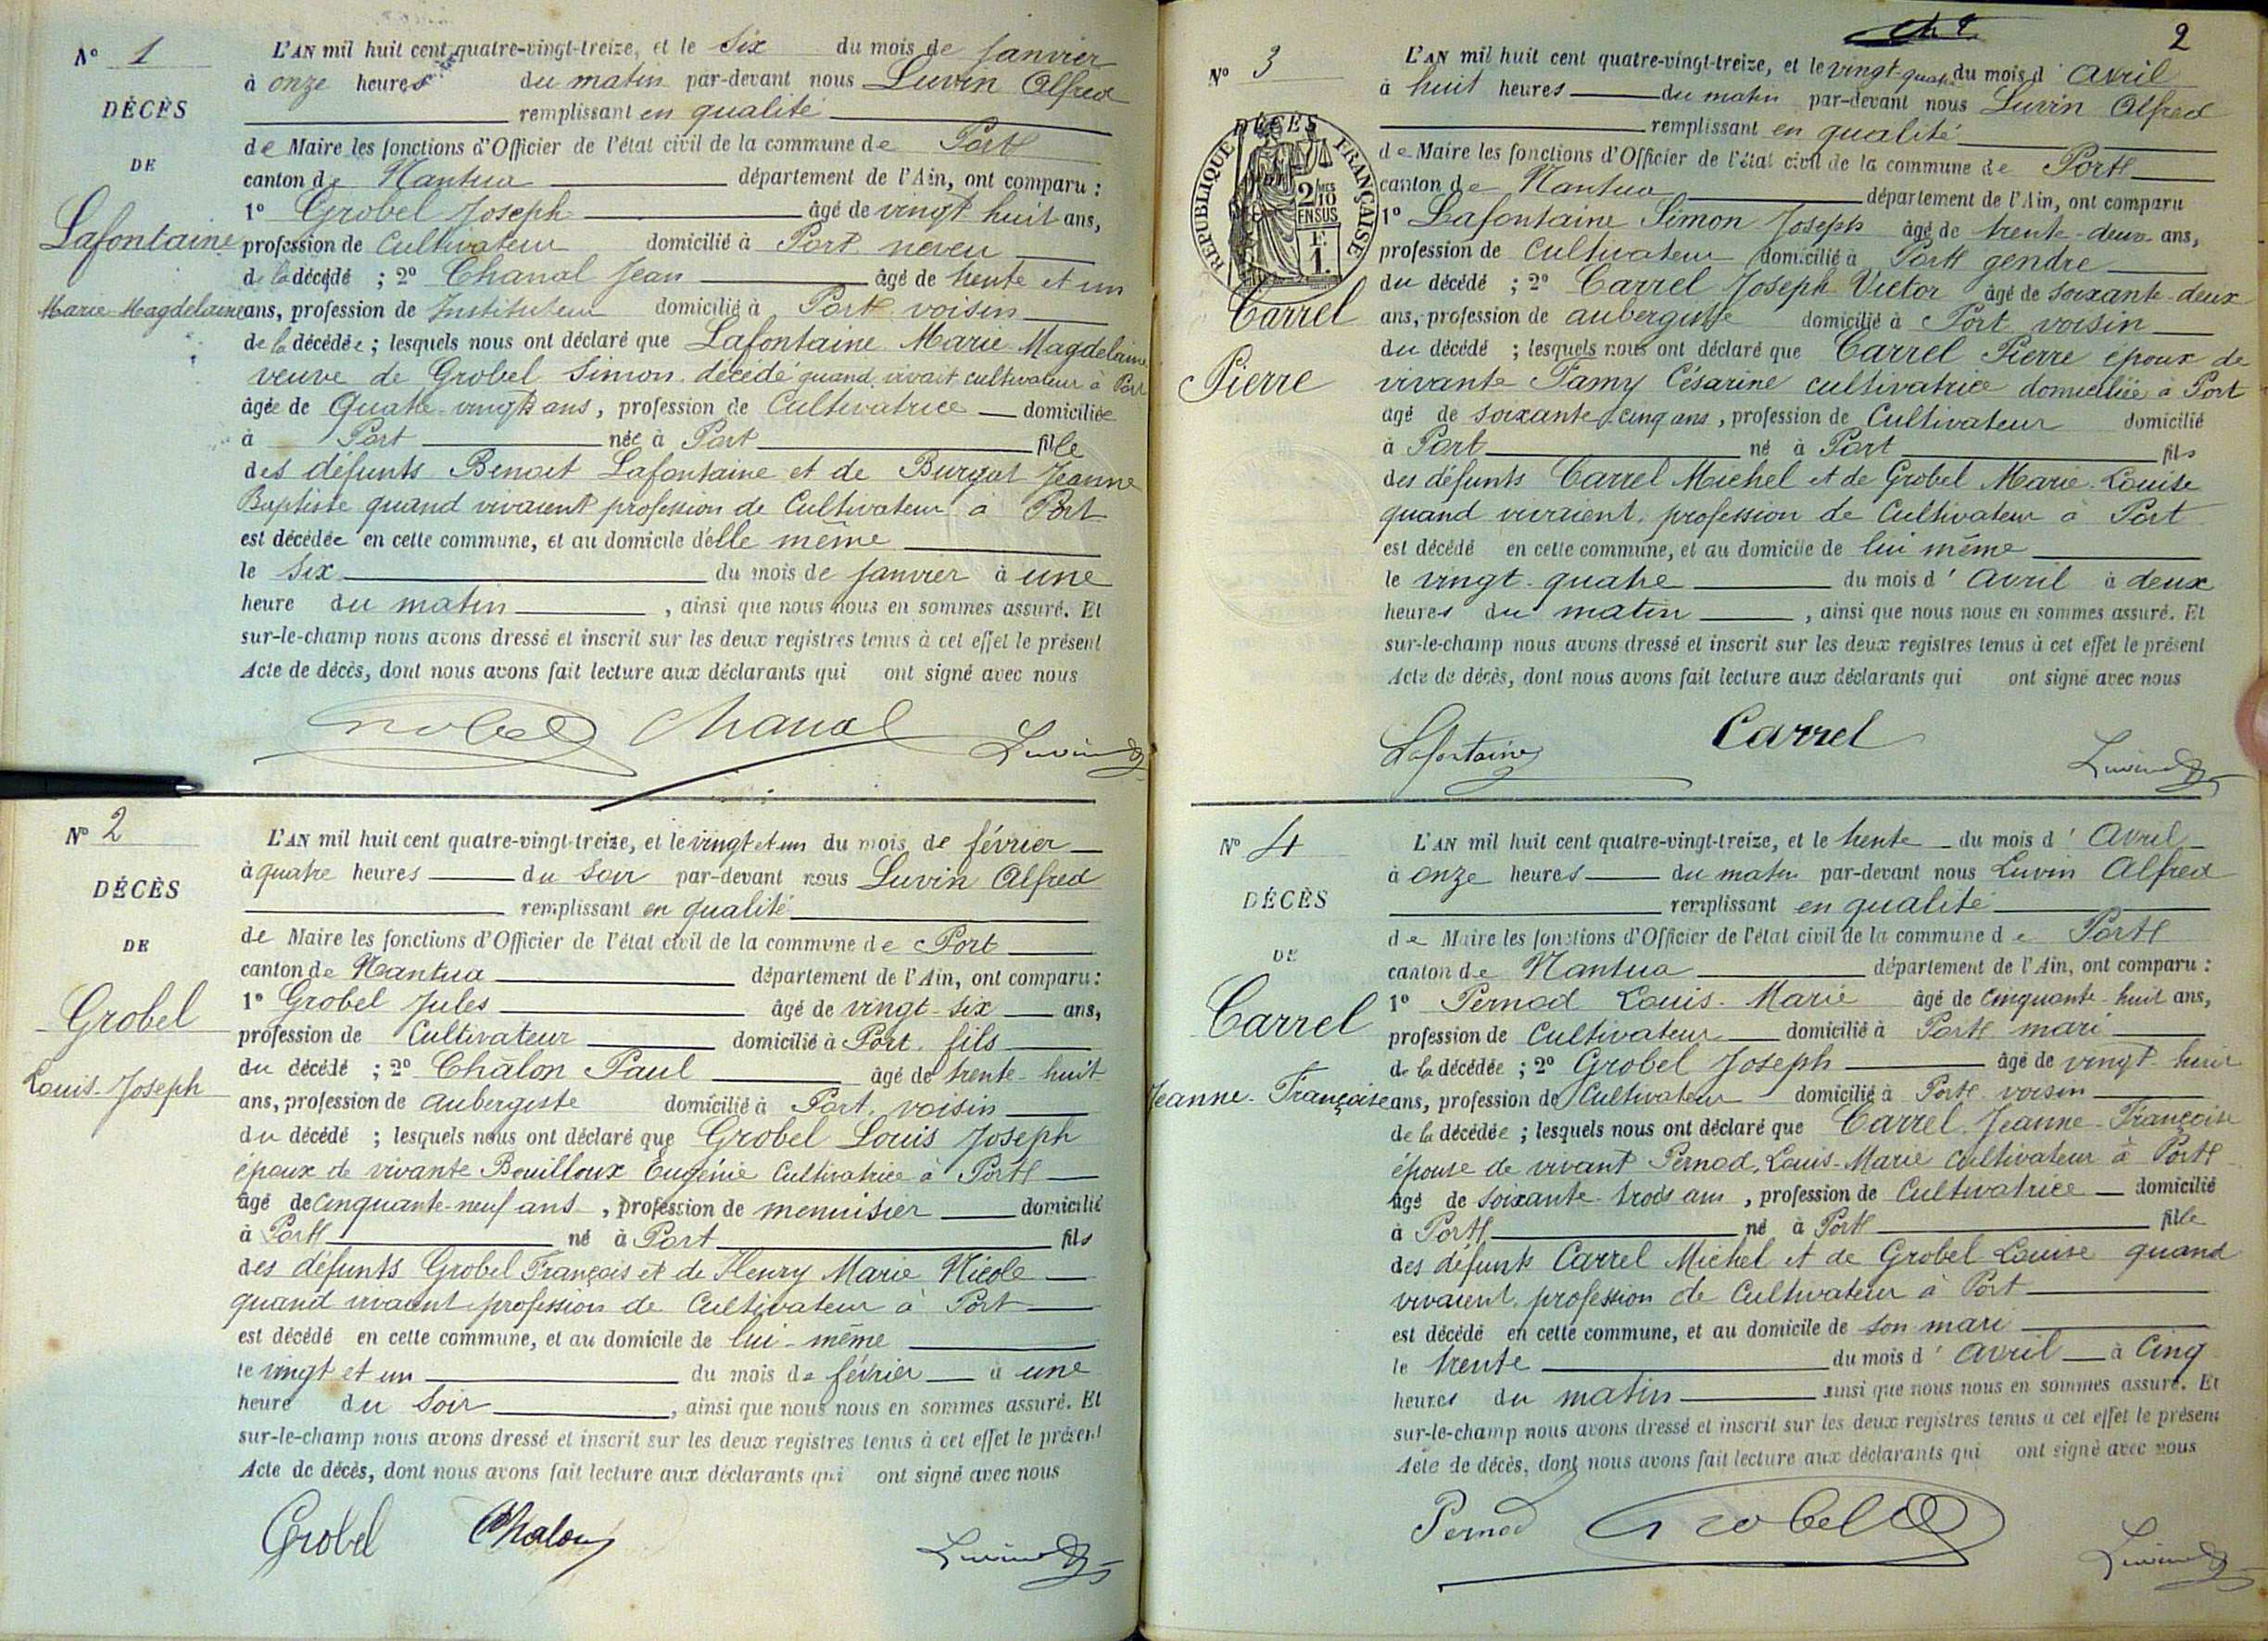 N° 1
DÉCÈS
DE
Lafontaine
Marie-Magdelaine
L'AN mil huit cent quatre-vingt-treize, et le Six du mois de Janvier
à onze heures du matin par-devant nous Luvin Alfred
remplissant en qualité
de Maire les fonctions d'Officier de l'état civil de la commune de Port
canton de Nantua département de l'Ain, ont comparu :
1° Grobel Joseph âgé de vingt huit ans,
profession de Cultivateur domicilié à Port neveu
de la décédé ; 2° Chanal Jean âgé de trente et un
ans, profession de Instituteur domicilié à Port voisin
de la décédée ; lesquels nous ont déclaré que Lafontaine Marie Magdelaine
veuve de Grobel Simon décédé quand vivait cultivateur à Port
âgée de Quatre-vingts ans, profession de Cultivatrice domiciliée
à Port née à Port fille
des défunts Benoit Lafontaine et de Burgat Jeanne
Baptiste quand vivaient profession de Cultivateur à Port
est décédée en cette commune, et au domicile d'elle même
le Six du mois de Janvier à une
heure du matin, ainsi que nous nous en sommes assuré. Et
sur-le-champ nous avons dressé et inscrit sur les deux registres tenus à cet effet le présent
Acte de décès, dont nous avons fait lecture aux déclarants qui ont signé avec nous
Grobel Chanal Luvin
N° 2
DÉCÈS
DE
Grobel
Louis-Joseph
L'AN mil huit cent quatre-vingt-treize, et le vingt et un du mois de février
à quatre heures du Soir par-devant nous Luvin Alfred
remplissant en qualité
de Maire les fonctions d'Officier de l'état civil de la commune de Port
canton de Nantua département de l'Ain, ont comparu :
1° Grobel Jules âgé de vingt-six ans,
profession de Cultivateur domicilié à Port. fils
du décédé ; 2° Châlon Paul âgé de trente-huit
ans, profession de aubergiste domicilié à Port. voisin
du décédé ; lesquels nous ont déclaré que Grobel Louis Joseph
époux de vivante Bouilloux Eugénie Cultivatrice à Port
âgé de cinquante-neuf ans, profession de menuisier domicilié
à Port né à Port fils
des défunts Grobel François et de Henry Marie Nicole
quand vivaient profession de Cultivateur à Port
est décédé en cette commune, et au domicile de lui-même
le vingt et un du mois de février à une
heure du Soir, ainsi que nous nous en sommes assuré. Et
sur-le-champ nous avons dressé et inscrit sur les deux registres tenus à cet effet le présent
Acte de décès, dont nous avons fait lecture aux déclarants qui ont signé avec nous
Grobel Chalon Luvin
2
N° 3
DÉCÈS
RÉPUBLIQUE FRANÇAISE
2/10
EN SUS
1.
Carrel
Pierre
L'AN mil huit cent quatre-vingt-treize, et le vingt-quatre du mois d' Avril
à huit heures du matin par-devant nous Luvin Alfred
remplissant en qualité
de Maire les fonctions d'Officier de l'état civil de la commune de Port
canton de Nantua département de l'Ain, ont comparu
1° Lafontaine Simon Joseph âgé de trente-deux ans,
profession de Cultivateur domicilié à Port gendre
du décédé ; 2° Carrel Joseph Victor âgé de soixante-deux
ans, profession de aubergiste domicilié à Port voisin
du décédé ; lesquels nous ont déclaré que Carrel Pierre époux de
vivante Famy Césarine cultivatrice domiciliée à Port
âgé de soixante-cinq ans, profession de Cultivateur domicilié
à Port né à Port fils
des défunts Carrel Michel et de Grobel Marie-Louise
quand vivaient profession de Cultivateur à Port
est décédé en cette commune, et au domicile de lui même
le vingt-quatre du mois d' Avril à deux
heures du matin, ainsi que nous nous en sommes assuré. Et
sur-le-champ nous avons dressé et inscrit sur les deux registres tenus à cet effet le présent
Acte de décès, dont nous avons fait lecture aux déclarants qui ont signé avec nous
Lafontaine Carrel Luvin
N° 4
DÉCÈS
DE
Carrel
Jeanne-Françoise
L'AN mil huit cent quatre-vingt-treize, et le trente du mois d' Avril
à onze heures du matin par-devant nous Luvin Alfred
remplissant en qualité
de Maire les fonctions d'Officier de l'état civil de la commune de Port
canton de Nantua département de l'Ain, ont comparu :
1° Pernod Louis-Marie âgé de cinquante-huit ans,
profession de Cultivateur domicilié à Port mari
de la décédée ; 2° Grobel Joseph âgé de vingt-huit
ans, profession de Cultivateur domicilié à Port voisin
de la décédée ; lesquels nous ont déclaré que Carrel Jeanne-Françoise
épouse de vivant Pernod, Louis-Marie cultivateur à Port
âgé de soixante-trois ans, profession de Cultivatrice domicilié
à Port né à Port fille
des défunts Carrel Michel et de Grobel Louise quand
vivaient profession de Cultivateur à Port
est décédé en cette commune, et au domicile de son mari
le trente du mois d' Avril à Cinq
heures du matin ainsi que nous nous en sommes assuré. Et
sur-le-champ nous avons dressé et inscrit sur les deux registres tenus à cet effet le présent
Acte de décès, dont nous avons fait lecture aux déclarants qui ont signé avec nous
Pernod Grobel Luvin